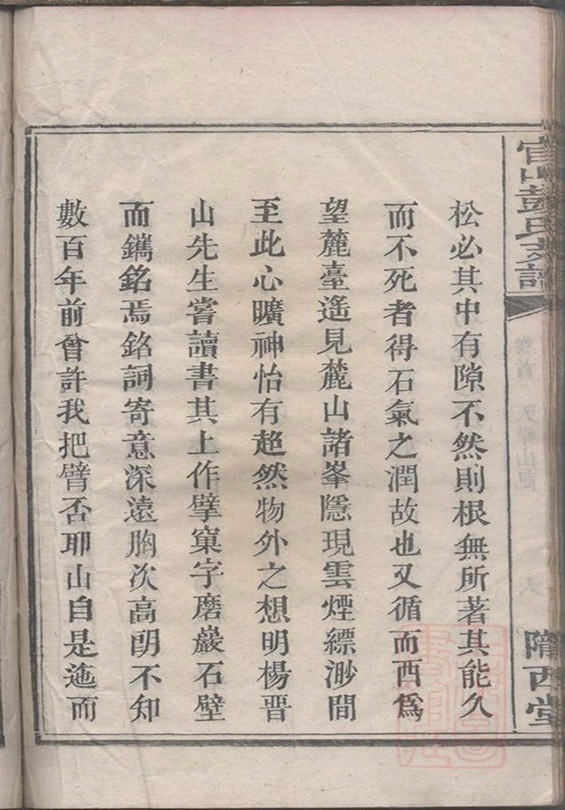 官山彭氏支譜
隋西堂
松必其中有隙不然則根無所著其能久
而不死者得石氣之潤故也又循而西爲
望麓臺遙見麓山諸峯隱現雲煙縹渺間
至此心曠神怡有趂然物外之想明楊晋
山先生嘗讀書其上作擘窠字磨巖石壁
而鐫銘焉銘詞寄意深遠胸次高朗不知
數百年前曾許我把臂否耶山自是迤而